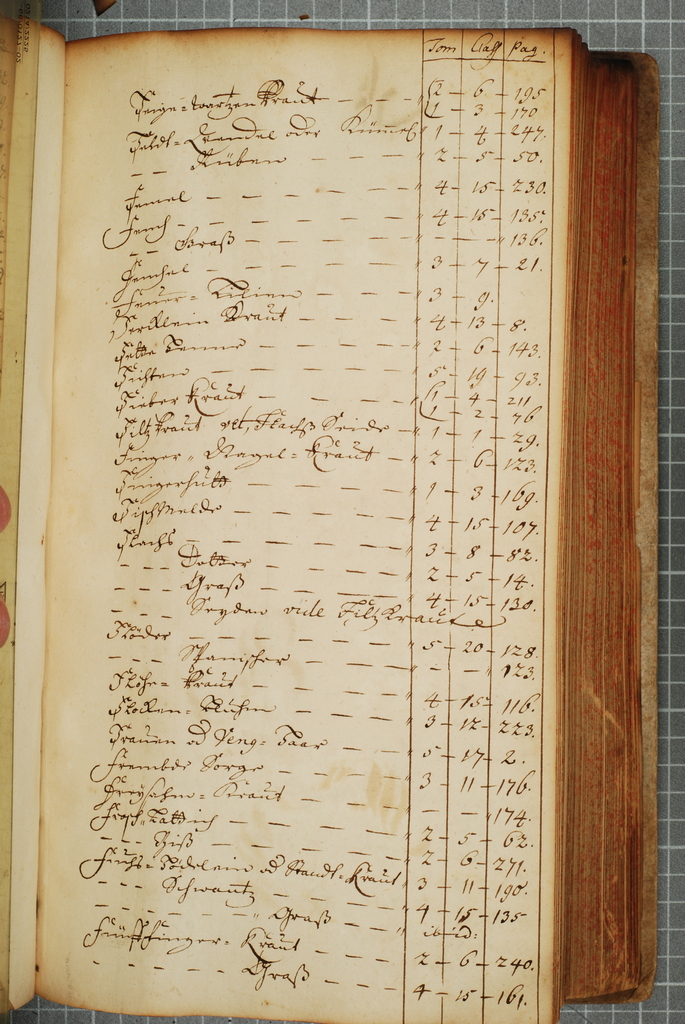 Tom Class pag.
Feige-wartzen Kraut — — — 2 — 6 — 195
1 — 3 — 170
Feldt- oder Kümmel 1 — 4 — 247.
— — Rüben — — — — 2 — 5 — 50.
Femel — — — — — 4 — 15 — 230.
Fench — — — — — 4 — 15 — 135.
— — Graß — — — — — — " 136.
Fenchel — — — — — 3 — 7 — 21.
Feuer-Lilien — — — — 3 — 9.
Kraut — — — — 4 — 13 — 8.
Fette Henne — — — — 2 — 6 — 143.
Fichten — — — — — 5 — 19 — 93.
Fieber Kraut — — — — 1 — 4 — 211
1 — 2 — 76
Filtzkraut vel, Flachs Seide — 1 — 1 — 29.
Finger " Nagel-Kraut — — 2 — 6 — 123.
Fingerhutt — — — — 1 — 3 — 169.
Fischmelde — — — — 4 — 15 — 107.
Flachs — — — — — 3 — 8 — 82.
- - - Dotter — — — — 2 — 5 — 14.
- - - Graß — — — — 4 — 15 — 130.
- - - Seyden vide Filtzkraut
Flöder — — — — — 5 — 20 — 128.
- - - Spanischer — — — — — " 123.
Flöhe-Kraut — — — — 4 — 15 — 116.
Flocken- — — — 3 — 12 — 223.
Frauen od Veng-Haar — — 5 — 17 — 2.
Frembde Sorge — — — — 3 — 11 — 176.
Freysahm-Kraut — — — — — " 174.
Frosch-Lattich — — — — 2 — 5 — 62.
- - - Biß — — — — 2 — 6 — 271.
Fuchs- od Standt-Kraut 3 — 11 — 190.
- - - Schwantz — — — 4 — 15 — 135
- - - - - " Graß — — " ibid:
Fünffinger-Kraut — — — 2 — 6 — 240.
- - - - - Graß — — — 4 — 15 — 161.